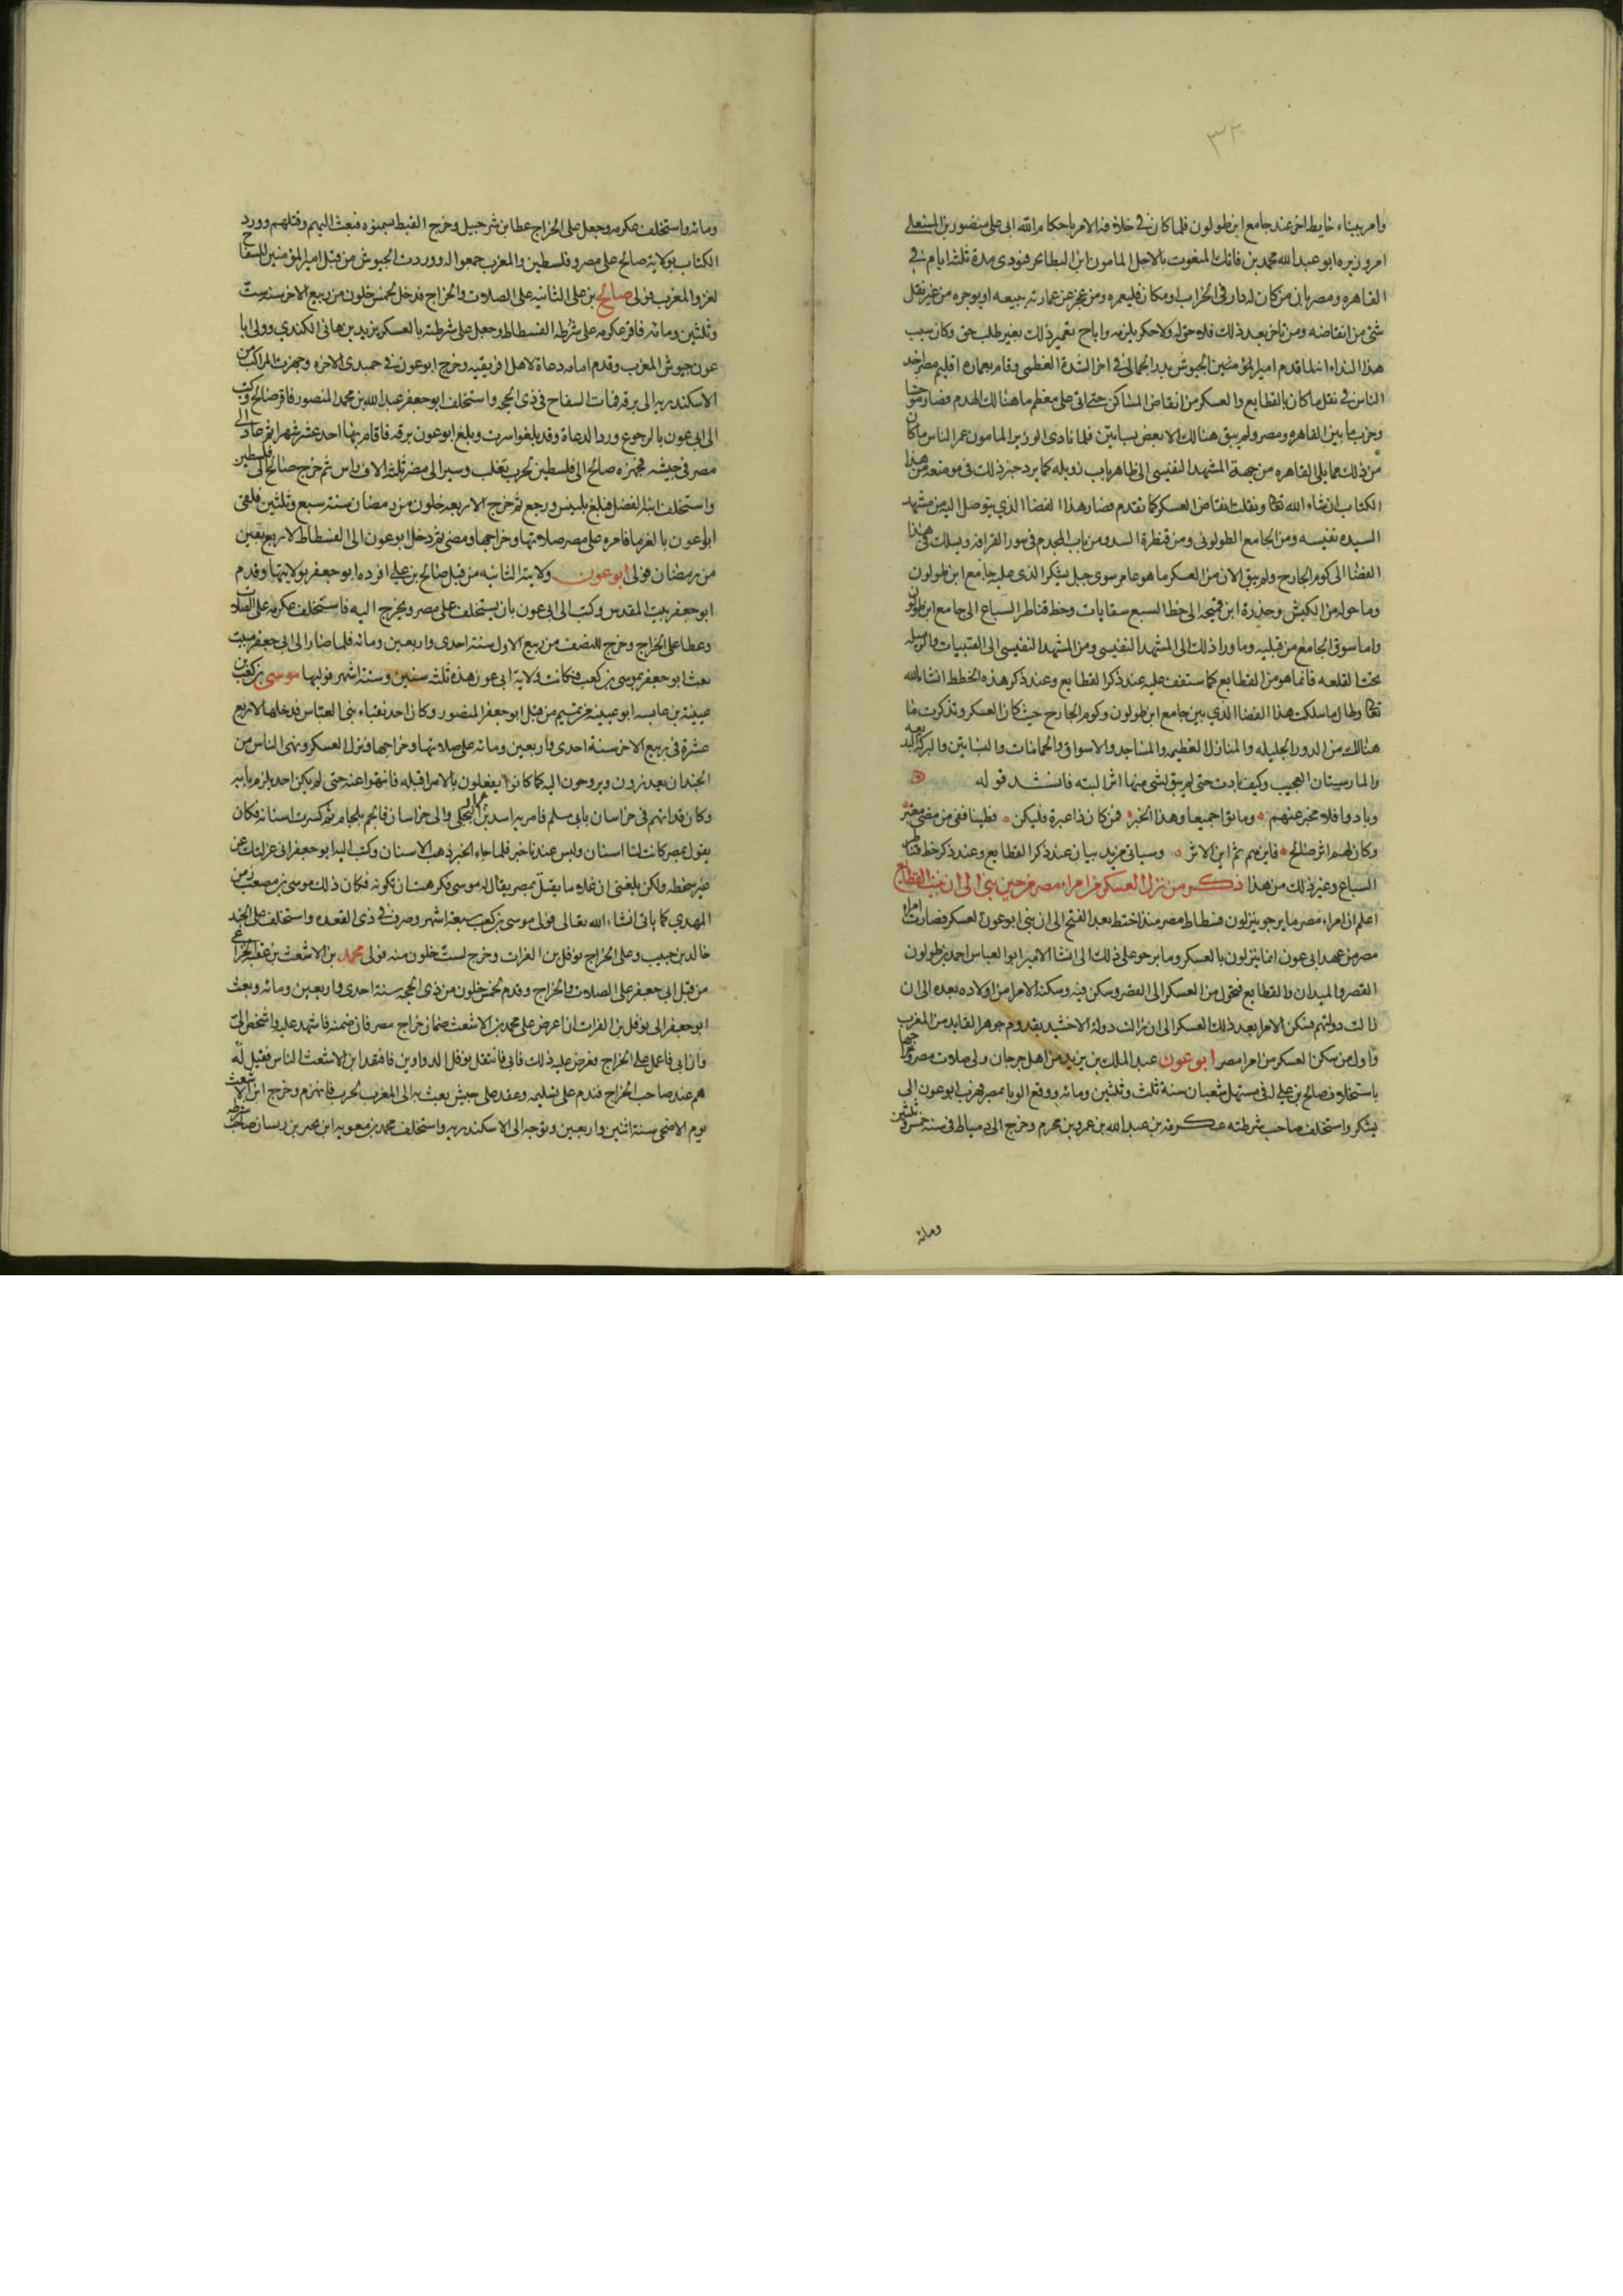 ٣٢
وامر ببناء حايط اخر عند جامع ابن طولون فلما كان في خلافة الامر باحكام الله ابى على منصور بن المستعلى
امر وزيره ابو عبد الله محمد بن فاتك المنعوت بالاجل المامون ابن البطايحى فنودى مدة ثلثة ايام في
القاهره ومصر بان من كان له دار في الخراب او مكان فليعمره ومن عجز عن عمارته يبيعه او يوجره من غير نقل
شى من انقاضه ومن تاخر بعد ذلك فلا حق له ولا حكر يلزمه واباح تعمير ذلك بغير طلب حق وكان سبب
هذا النداء انه لما قدم امير الجيوش بدر الجمالى في اخر الشدة العظمى وقام بعماره اقليم مصر اخذ
الناس في نقل ما كان بالقطايع والعسكر من انقاض المساكن حتى اتى على معظم ما هنالك الهدم فصار موحشا
وخرب ما بين القاهره ومصر ولم يبق هنالك الا بعض بساتين فلما نادى الوزير المامون عمر الناس ما كان
من ذلك مما يلى القاهره من جهة المشهد النفيسى الى ظاهر باب زويله كما يرد خبر ذلك في موضعه من هذا
الكتاب ان شاء الله تعالى ونقلت انقاض العسكر كما تقدم فصار هذا الفضا الذي يتوصل اليه من مشهد
السيده نفيسه ومن الجامع الطولونى ومن قنطرة السد ومن باب المجدم في سور القرافه ويسلك في هذا
الفضا الى كوم الجارح ولم يبق الان من العسكر ما هو عامر سوى جبل يشكر الذى عليه جامع ابن طولون
وما حوله من الكبش وحدرة ابن قميحه الى خط السبع سقايات وخط قناطر السباع الى جامع ابن طولون
واما سوق الجامع من قبليه وما ورا ذلك الى المشهد النفيسى ومن المشهد النفيسى الى القبيبات والرميله
تحت القلعه فانما هو من القطايع كما ستقف عليه عند ذكر القطايع وعند ذكر هذه الخطط انشا الله
تعالى وطال ما سلكت هذا الفضا الذي بين جامع ابن طولون وكوم الجارح حيث كان العسكر وتذكرت ما
هنالك من الدور الجليله والمنازل العظيمه والمساجد والاسواق والحمامات والبساتين والبركه البديعه
والمارستان العجيب وكيف بادت حتى لم يبق لشى منها اثر البته فانشد قوله
وبادوا فلا مخبر عنهم وماتوا جميعا وهذا الخبر فمن كان ذا عبرة فليكن فطينا ففى من مضى معتبر
وكان لهم اثر صالح فاين هم ثم اين الاثر وسياتى مزيد بيان عند ذكر القطايع وعند ذكر خط قناطر
السباع وغير ذلك من هذا ذكر من نزل العسكر من امراء مصر من حين بنى الى ان بنيت القطايع
اعلم ان امراء مصر ما برحو ينزلون فسطاط مصر منذ اختط بعد الفتح الى ان بنى ابو عون العسكر فصارت امراء
مصر من عهد ابى عون انما ينزلون بالعسكر وما برحو على ذلك الى انشا الامير ابو العباس احمد بن طولون
القصر والميدان والقطايع فتحول من العسكر الى القصر وسكن فيه وسكنه الامرا من اولاده بعده الى ان
زالت دولتهم فسكن الامرا بعد ذلك العسكر الى ان زالت دولة الاخشيد بقدوم جوهر القايد من المغرب
واول من سكن العسكر من امرا مصر ابو عون عبد الملك بن يزيد من اهل جرجان ولى صلات مصر وخراجها
باستخلاف صالح بن على له في مستهل شعبان سنة ثلث وثلثين ومائه ووقع الوبا بمصر فهرب ابو عون الى
يشكر واستخلف صاحب شرطته عكرمة بن عبد الله بن عمرو بن مخرم وخرج الى دمياط في سنة خمس وثلثين
ومائه
ومائه واستخلف عكرمه وجعل على الخراج عطا بن شرحبيل وخرج القبط بسمنوه فبعث اليهم وقتلهم وورد
الكتاب بولاية صالح على مصر وفلسطين والمغرب جمعوا له ووردت الجيوش من قبل امير المومنين السفاح
لغزو المغرب فولى صالح بن على الثانيه على الصلات والخراج فدخل لخمس خلون من ربيع الاخر سنة ست
وثلثين ومائه فاقر عكرمه على شرطه الفسطاط وجعل على شرطته بالعسكر يزيد بن هانى الكندي وولى ابا
عون جيوش المغرب وقدم امامه دعاة لاهل افريقيه وخرج ابو عون في جمادى الاخره وجهزت المراكب من
الاسكندريه الى برقه فمات السفاح في ذى الحجه واستخلف ابو جعفر عبد الله بن محمد المنصور فاقر صالح وكتب
الى ابى عون بالرجوع ورد الدعاة وقد بلغوا سرت وبلغ ابو عون برقه فاقام بها احد عشر شهرا ثم عاد الى
مصر في جيشه فجهزه صالح الى فلسطين لحرب تغلب وسير الى مصر ثلثة الاف راس ثم خرج صالح الى فلسطين
واستخلف ابنه الفضل فبلغ بلبيس ورجع ثم خرج لاربعه خلون من رمضان سنة سبع وثلثين فلقى
ابو عون بالفرما فامره على مصر صلاتها وخراجها ومضى ثم دخل ابو عون الى الفسطاط لاربع بقين
من رمضان فولى ابو عون ولايته الثانيه من قبل صالح بن على ثم افرده ابو جعفر بولايتها وقدم
ابو جعفر بيت المقدس وكتب الى ابى عون بان يستخلف على مصر ويخرج اليه فاستخلف عكرمه على الصلاه
وعطا على الخراج وخرج للنصف من ربيع الاول سنة احدى واربعين ومائه فلما صار الى ابى جعفر ببيت
بعث ابو جعفر بموسى بن كعب فكانت ولاية ابى عون هذه ثلثه سنين وستة اشهر فوليها موسى بن كعب بن
عيينة بن عايشه ابو عيينه من تميم من قبل ابو جعفر المنصور وكان احد نقباء بنى العباس فدخلها لاربع
عشرة في ربيع الاخر سنة احدى واربعين ومائه على صلاتها وخراجها ونزل العسكر ونهى الناس من
الجند ان يغدون ويروحون اليه كما كانوا يفعلون بالامرا قبله فانتهوا عنه حتى لم يكن احد يلزم بابه
وكان قد اتهم في خراسان بابى مسلم فامر به اسد بن عبد الله البجلى والى خراسان فالجم بلجام ثم كسرت اسنانه فكان
يقول بمصر كانت لنا اسنان وليس عندنا خبز فلما جاء الخبز ذهب الاسنان وكتب اليه ابو جعفر انى عزلتك عن
غير سخطه ولكن بلغنى ان غلاما يقتل بمصر يقال له موسى فكرهت ان تكونه فكان ذلك موسى بن مصعب زمن
المهدي كما ياتى انشاء الله تعالى فولى موسى بن كعب سبعة اشهر وصرف في ذى القعده واستخلف على الجند
خالد بن حبيب وعلى الخراج نوفل بن الفرات وخرج لست خلون منه فولى محمد بن الاشعث بن عقبه الخزاعى
من قبل ابى جعفر على الصلات والخراج وقدم لخمس خلون من ذى الحجه سنة احدى واربعين ومائه وبعث
ابو جعفر الى نوفل بن الفرات ان اعرض على محمد بن الاشعث ضمان خراج مصر فان ضمنه فاشهد عليه واشخص الى
وان ابى فاعمل على الخراج فعرض عليه ذلك فابى فانتقل نوفل الدواوين فافتقد ابن الاشعث الناس فقيل له
هم عند صاحب الخراج فندم على تسليمه وعقد على جيش بعث به الى المغرب لحرب فانهزم وخرج ابن الاشعث
يوم الاضحى سنة اثنين واربعين وتوجه الى الاسكندريه واستخلف محمد بن معويه ابن بحير بن ريسان صاحب شرطته